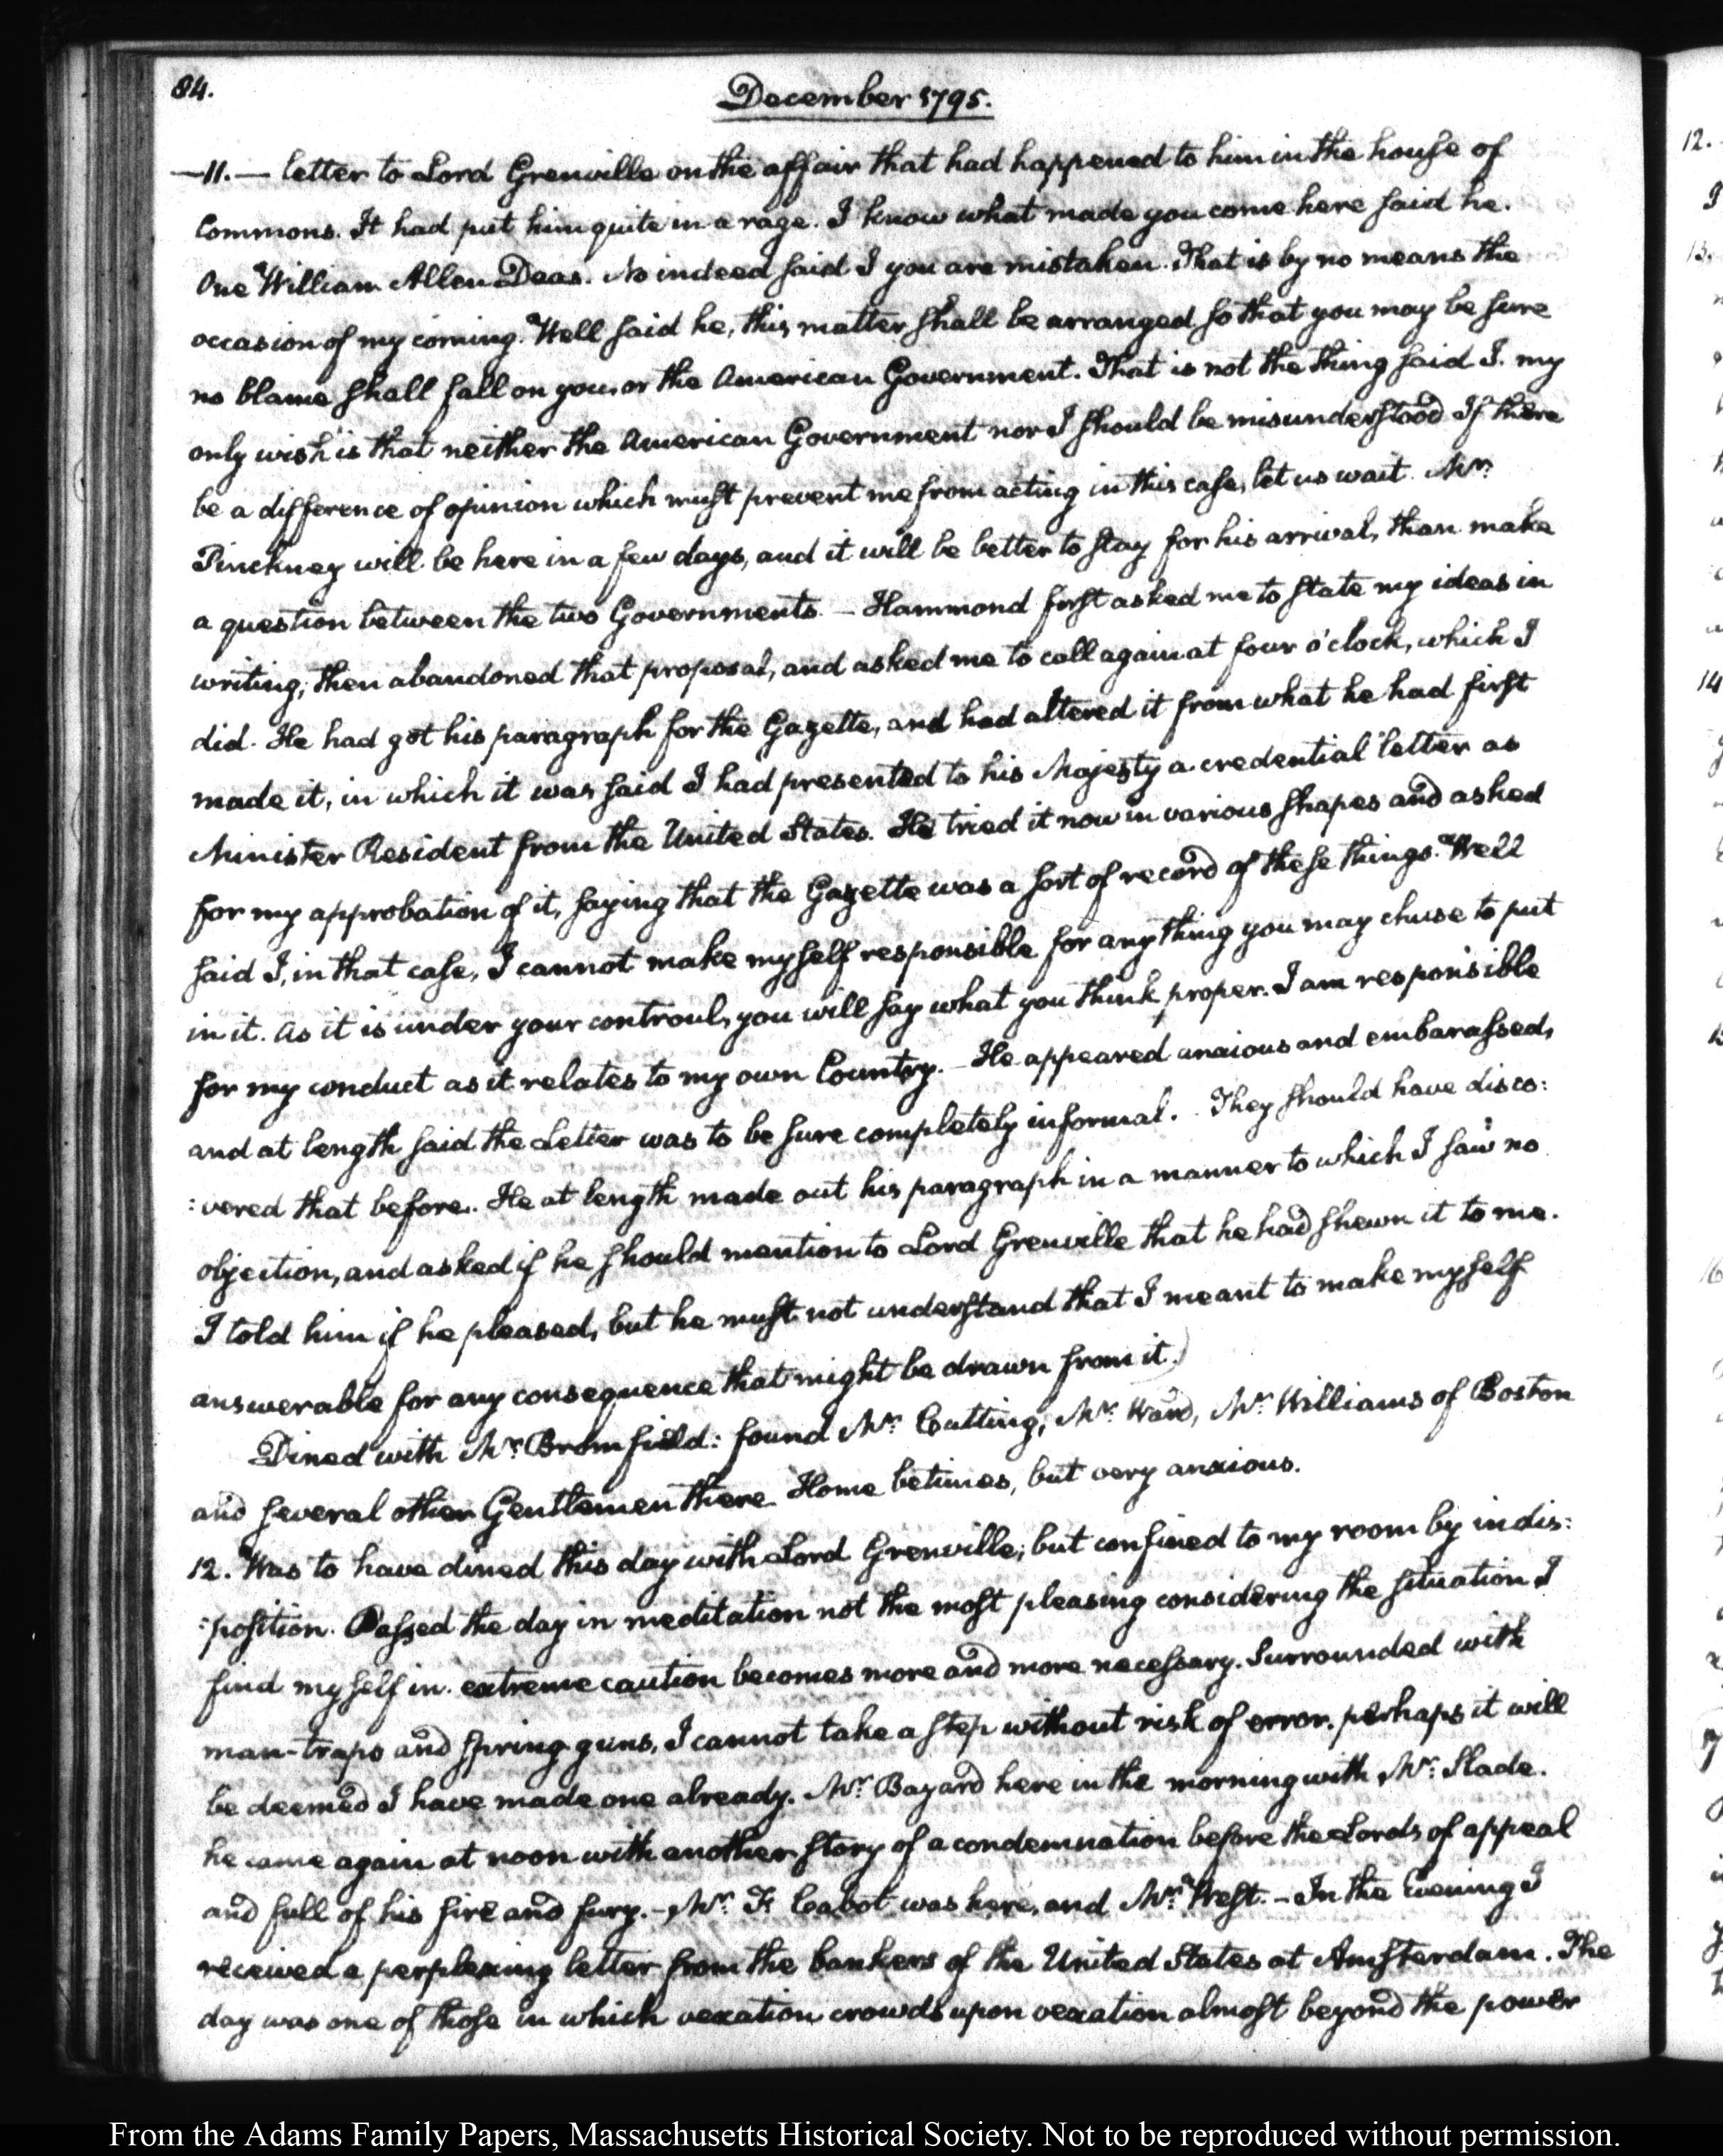 84.
December 1795.
—11.— letter to Lord Grenville on the affair that had happened to him in the house of
Commons. It had put him quite in a rage. I know what made you come here said he.
One William Allen Deas. No indeed said I you are mistaken. That is by no means the
occasion of my coming. Well said he, this matter shall be arranged so that you may be sure
no blame shall fall on you, or the American Government. That is not the thing said I. my
only wish is that neither the American Government nor I should be misunderstood If there
be a difference of opinion which must prevent me from acting in this case, let us wait. Mr.
Pinckney will be here in a few days, and it will be better to stay for his arrival, than make
a question between the two Governments. — Hammond first asked me to state my ideas in
writing; then abandoned that proposal, and asked me to call again at four o'clock, which I
did. He had got his paragraph for the Gazette, and had altered it from what he had first
made it, in which it was said I had presented to his Majesty a credential letter as
Minister Resident from the United States. He tried it now in various shapes and asked
for my approbation of it, saying that the Gazette was a sort of record of these things. Well
said I, in that case, I cannot make myself responsible for any thing you may chuse to put
in it. As it is under your controul, you will say what you think proper. I am responsible
for my conduct as it relates to my own Country. — He appeared anxious and embarassed,
and at length said the Letter was to be sure completely informal. They should have disco:
:vered that before. He at length made out his paragraph in a manner to which I saw no
objection, and asked if he should mention to Lord Grenville that he had shewn it to me.
I told him if he pleased, but he must not understand that I meant to make myself
answerable for any consequence that might be drawn from it.)
Dined with Mr. Bromfield: found Mr. Cutting, Mr. Ward, Mr. Williams of Boston
and several other Gentlemen there Home betimes, but very anxious.
12. Was to have dined this day with Lord Grenville; but confined to my room by indis:
:position. Passed the day in meditation not the most pleasing considering the situation I
find myself in. extreme caution becomes more and more necessary. Surrounded with
man-traps and spring guns, I cannot take a step without risk of error. perhaps it will
be deemed I have made one already. Mr. Bayard here in the morning with Mr. Slade.
he came again at noon with another story of a condemnation before the Lords of appeal
and full of his fire and fury. — Mr. F. Cabot was here, and Mr. West. — In the Evening I
received a perplexing letter from the bankers of the United States at Amsterdam. The
day was one of those in which vexation crowds upon vexation almost beyond the power
12.
I
13.
14
16
From the Adams Family Papers, Massachusetts Historical Society. Not to be reproduced without permission.